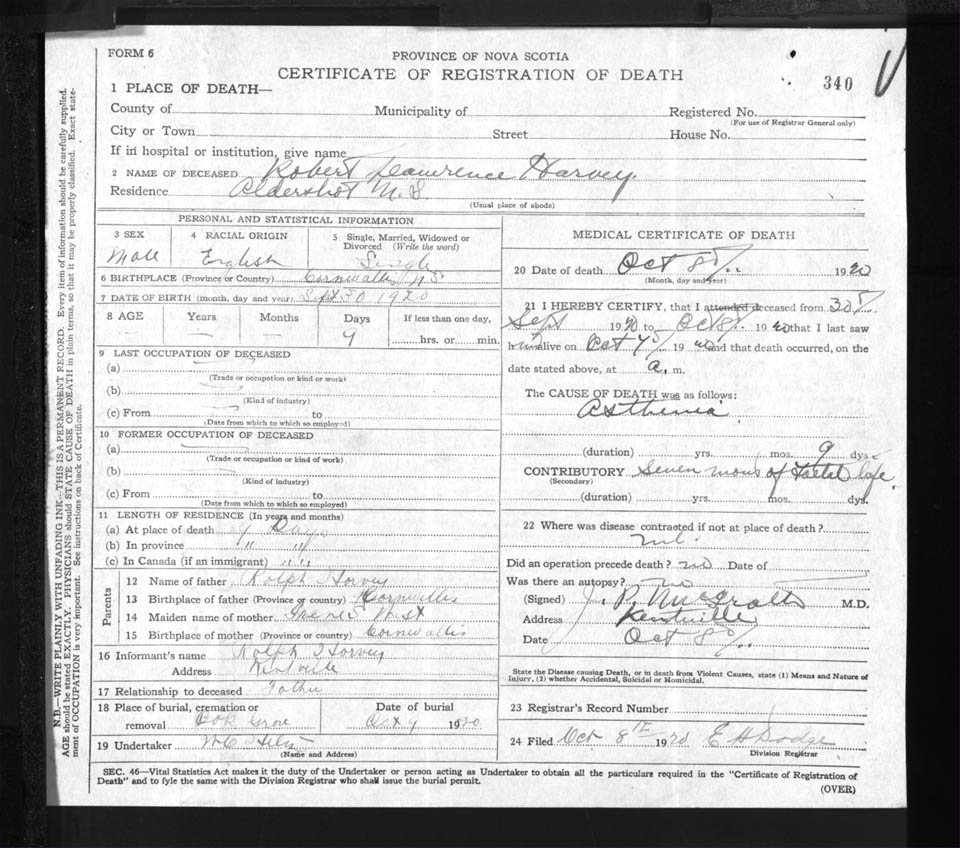 FORM 6
PROVINCE OF NOVA SCOTIA
CERTIFICATE OF REGISTRATION OF DEATH
340
1 PLACE OF DEATH—
County of Municipality of Registered No.
(For use of Registrar General only)
City or Town Street House No.
If in hospital or institution, give name
2 NAME OF DECEASED Robert Lawrence Harvey
Residence Aldershot N.S.
(Usual place of abode)
PERSONAL AND STATISTICAL INFORMATION
3 SEX
Male
4 RACIAL ORIGIN
English
5 Single, Married, Widowed or Divorced (Write the word)
Single
6 BIRTHPLACE (Province or Country) Cornwallis N S
7 DATE OF BIRTH (month, day and year) Sept 30 1920
8 AGE Years Months Days If less than one day,
9 hrs. or min.
9 LAST OCCUPATION OF DECEASED
(a)
(Trade or occupation or kind or work)
(b)
(Kind of industry)
(c) From to
(Date from which to which so employed)
10 FORMER OCCUPATION OF DECEASED
(a)
(Trade or occupation or kind of work)
(b)
(Kind of industry)
(c) From to
(Date from which to which so employed)
11 LENGTH OF RESIDENCE (In years and months)
(a) At place of death 9 Days
(b) In province " "
(c) In Canada (if an immigrant) " "
Parents
12 Name of father Ralph Harvey
13 Birthplace of father (Province or country) Cornwallis
14 Maiden name of mother West
15 Birthplace of mother (Province or country) Cornwallis
16 Informant's name Ralph Harvey
Address Kentville
17 Relationship to deceased Father
18 Place of burial, cremation or removal Oak Grove
Date of burial
Oct 9 1920
19 Undertaker
(Name and Address)
MEDICAL CERTIFICATE OF DEATH
20 Date of death Oct 8 1920
(Month, day and year)
21 I HEREBY CERTIFY, that I attended deceased from 30
Sept 1920 to Oct 8 1920 that I last saw
him alive on Oct 1920 and that death occurred, on the
date stated above, at a. m.
The CAUSE OF DEATH was as follows:
Asthenia
(duration) yrs. mos. 9 dys.
CONTRIBUTORY Seven mons of Foetal life
(Secondary)
(duration) yrs. mos. dys.
22 Where was disease contracted if not at place of death?
Did an operation precede death? no Date of
Was there an autopsy? no
(Signed) J. P. M.D.
Address Kentville
Date Oct 8
State the Disease causing Death, or in death from Violent Causes, state (1) Means and Nature of
Injury, (2) whether Accidental, Suicidal or Homicidal.
23 Registrar's Record Number
24 Filed Oct 8th 1920 E H Dodge
Division Registrar
SEC. 46—Vital Statistics Act makes it the duty of the Undertaker or person acting as Undertaker to obtain all the particulars required in the "Certificate of Registration of
Death" and to fyle the same with the Division Registrar who shall issue the burial permit.
(OVER)
N.B.—WRITE PLAINLY WITH UNFADING INK—THIS IS A PERMANENT RECORD. Every item of information should be carefully supplied.
AGE should be stated EXACTLY. PHYSICIANS should STATE CAUSE OF DEATH in plain terms, so that it may be properly classified. Exact state-
ment of OCCUPATION is very important. See instructions on back of Certificate.